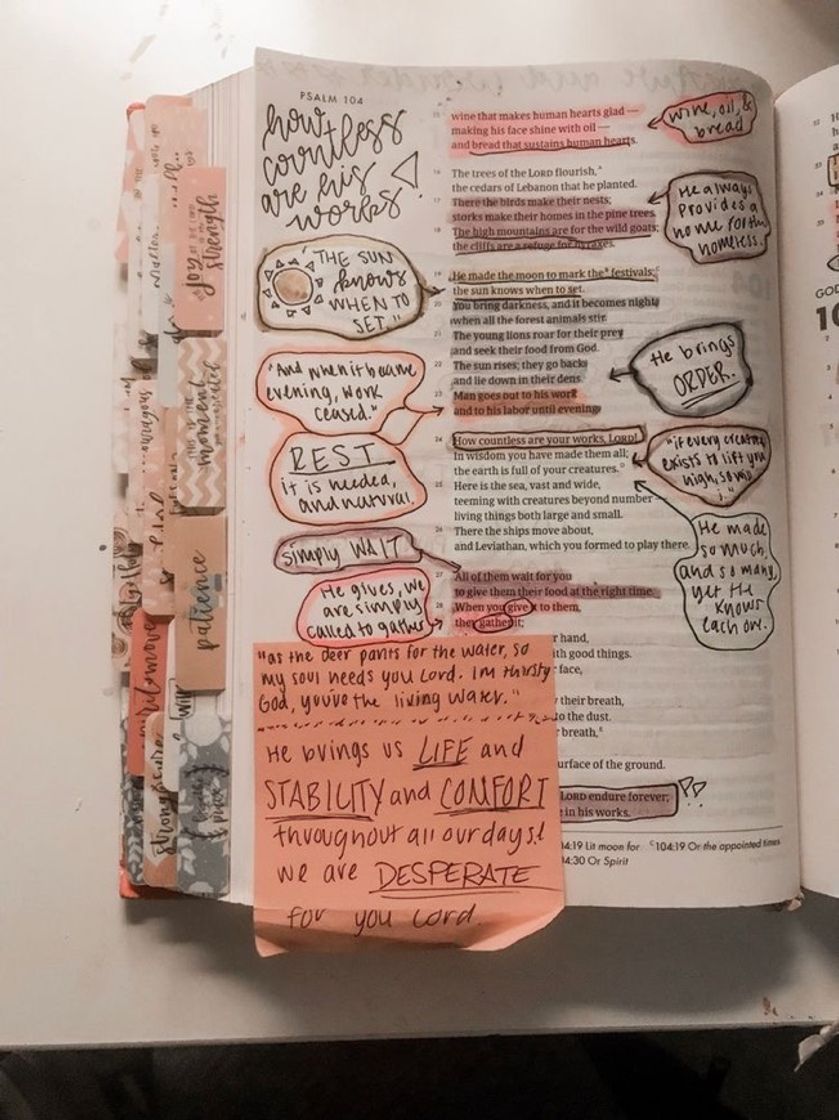 PSALM 104
how
countless
are his
works
"THE SUN
knows
WHEN TO
SET."
"And when it became
evening, work
ceased."
REST
it is needed,
and natural.
simply WAIT
He gives, we
are simply
called to gather
15 wine that makes human hearts glad —
making his face shine with oil —
and bread that sustains human hearts.
16 The trees of the LORD flourish,
the cedars of Lebanon that he planted.
17 There the birds make their nests;
storks make their homes in the pine trees.
18 The high mountains are for the wild goats;
the cliffs are a refuge for hyraxes.
19 He made the moon to mark the festivals;
the sun knows when to set.
20 You bring darkness, and it becomes night,
when all the forest animals stir.
21 The young lions roar for their prey
and seek their food from God.
22 The sun rises; they go back
and lie down in their dens.
23 Man goes out to his work
and to his labor until evening.
24 How countless are your works, LORD!
In wisdom you have made them all;
the earth is full of your creatures.
25 Here is the sea, vast and wide,
teeming with creatures beyond number —
living things both large and small.
26 There the ships move about,
and Leviathan, which you formed to play there.
27 All of them wait for you
to give them their food at the right time.
28 When you give it to them,
they gather it;
r hand,
ith good things.
face,
their breath,
to the dust.
breath,
urface of the ground.
LORD endure forever;
in his works.
04:19 Lit moon for c104:19 Or the appointed times
04:30 Or Spirit
wine, oil, &
bread
He always
provides a
home for the
homeless.
He brings
ORDER.
"if every creature
exists to lift you
high, so will
i."
He made
so much,
and so many,
yet He
knows
each one.
"as the deer pants for the water, so
my soul needs you Lord. Im thirsty
God, you're the living water."
He brings us LIFE and
STABILITY and COMFORT
throughout all our days!
we are DESPERATE
for you Lord.
joy
strength
moment
patience
strong & secure
GOD